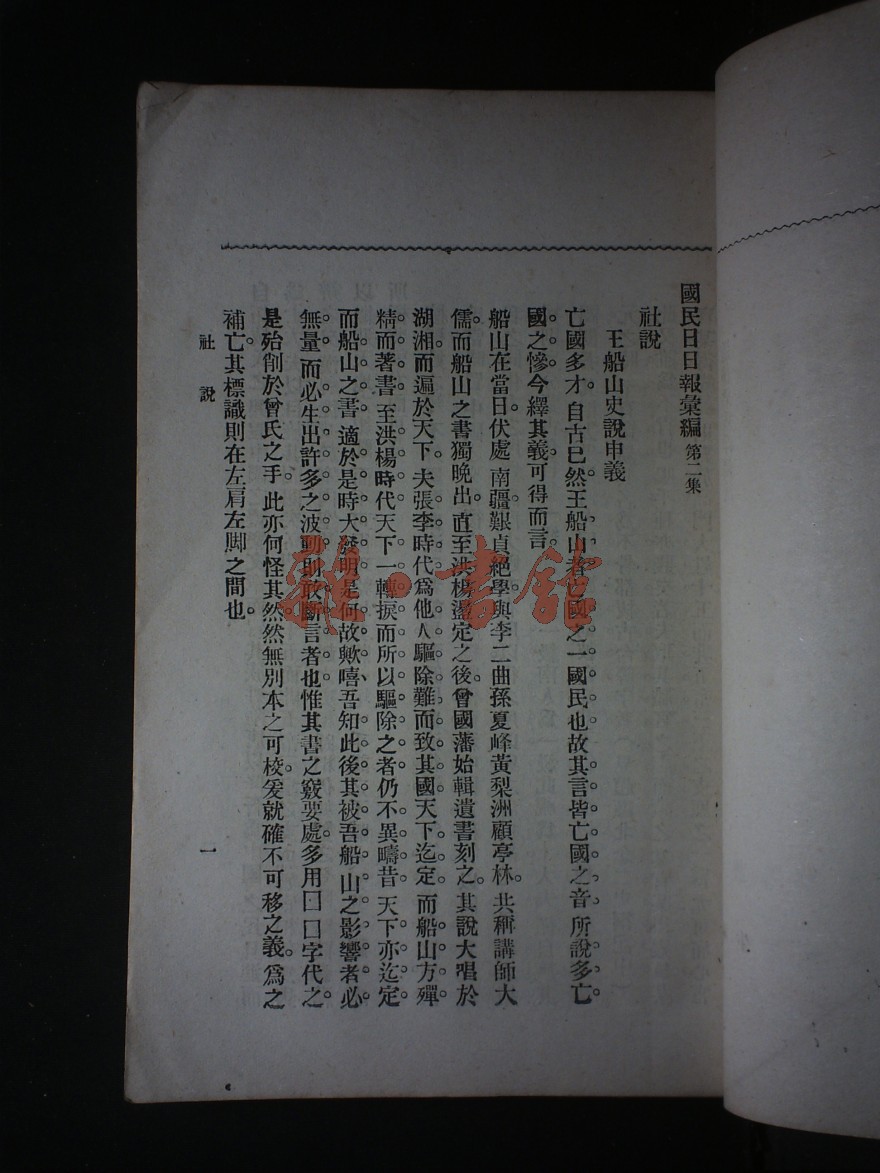 國民日日報彙編 第二集
社說
王船山史說申義
亡國多才。自古已然王船山者亡國之一國民也故其言皆亡國之音。所說多亡
國之慘今繹其義可得而言
船山在當日。伏處南疆艱貞絕學與李二曲孫夏峰黃梨洲顧亭林。共稱講師大
儒而船山之書獨晚出。直至洪楊盪定之後。曾國藩始輯遺書刻之。其說大唱於
湖湘而遍於天下。夫張李時代爲他人驅除難而致其國天下迄定。而船山方殫
精而著書。至洪楊時代天下一轉捩而所以驅除之者仍不異疇昔。天下亦迄定
而船山之書。適於是時大發明是何故歟嘻吾知此後其被吾船山之影響者必
無量。而必生出許多之波動則敢斷言者也惟其書之竅要處。多用囗囗字代之
是殆創於曾氏之手。此亦何怪其然然無別本之可校。爰就確不可移之義。爲之
補亡。其標識則在左肩左脚之間也。
社說
一
雜·書館